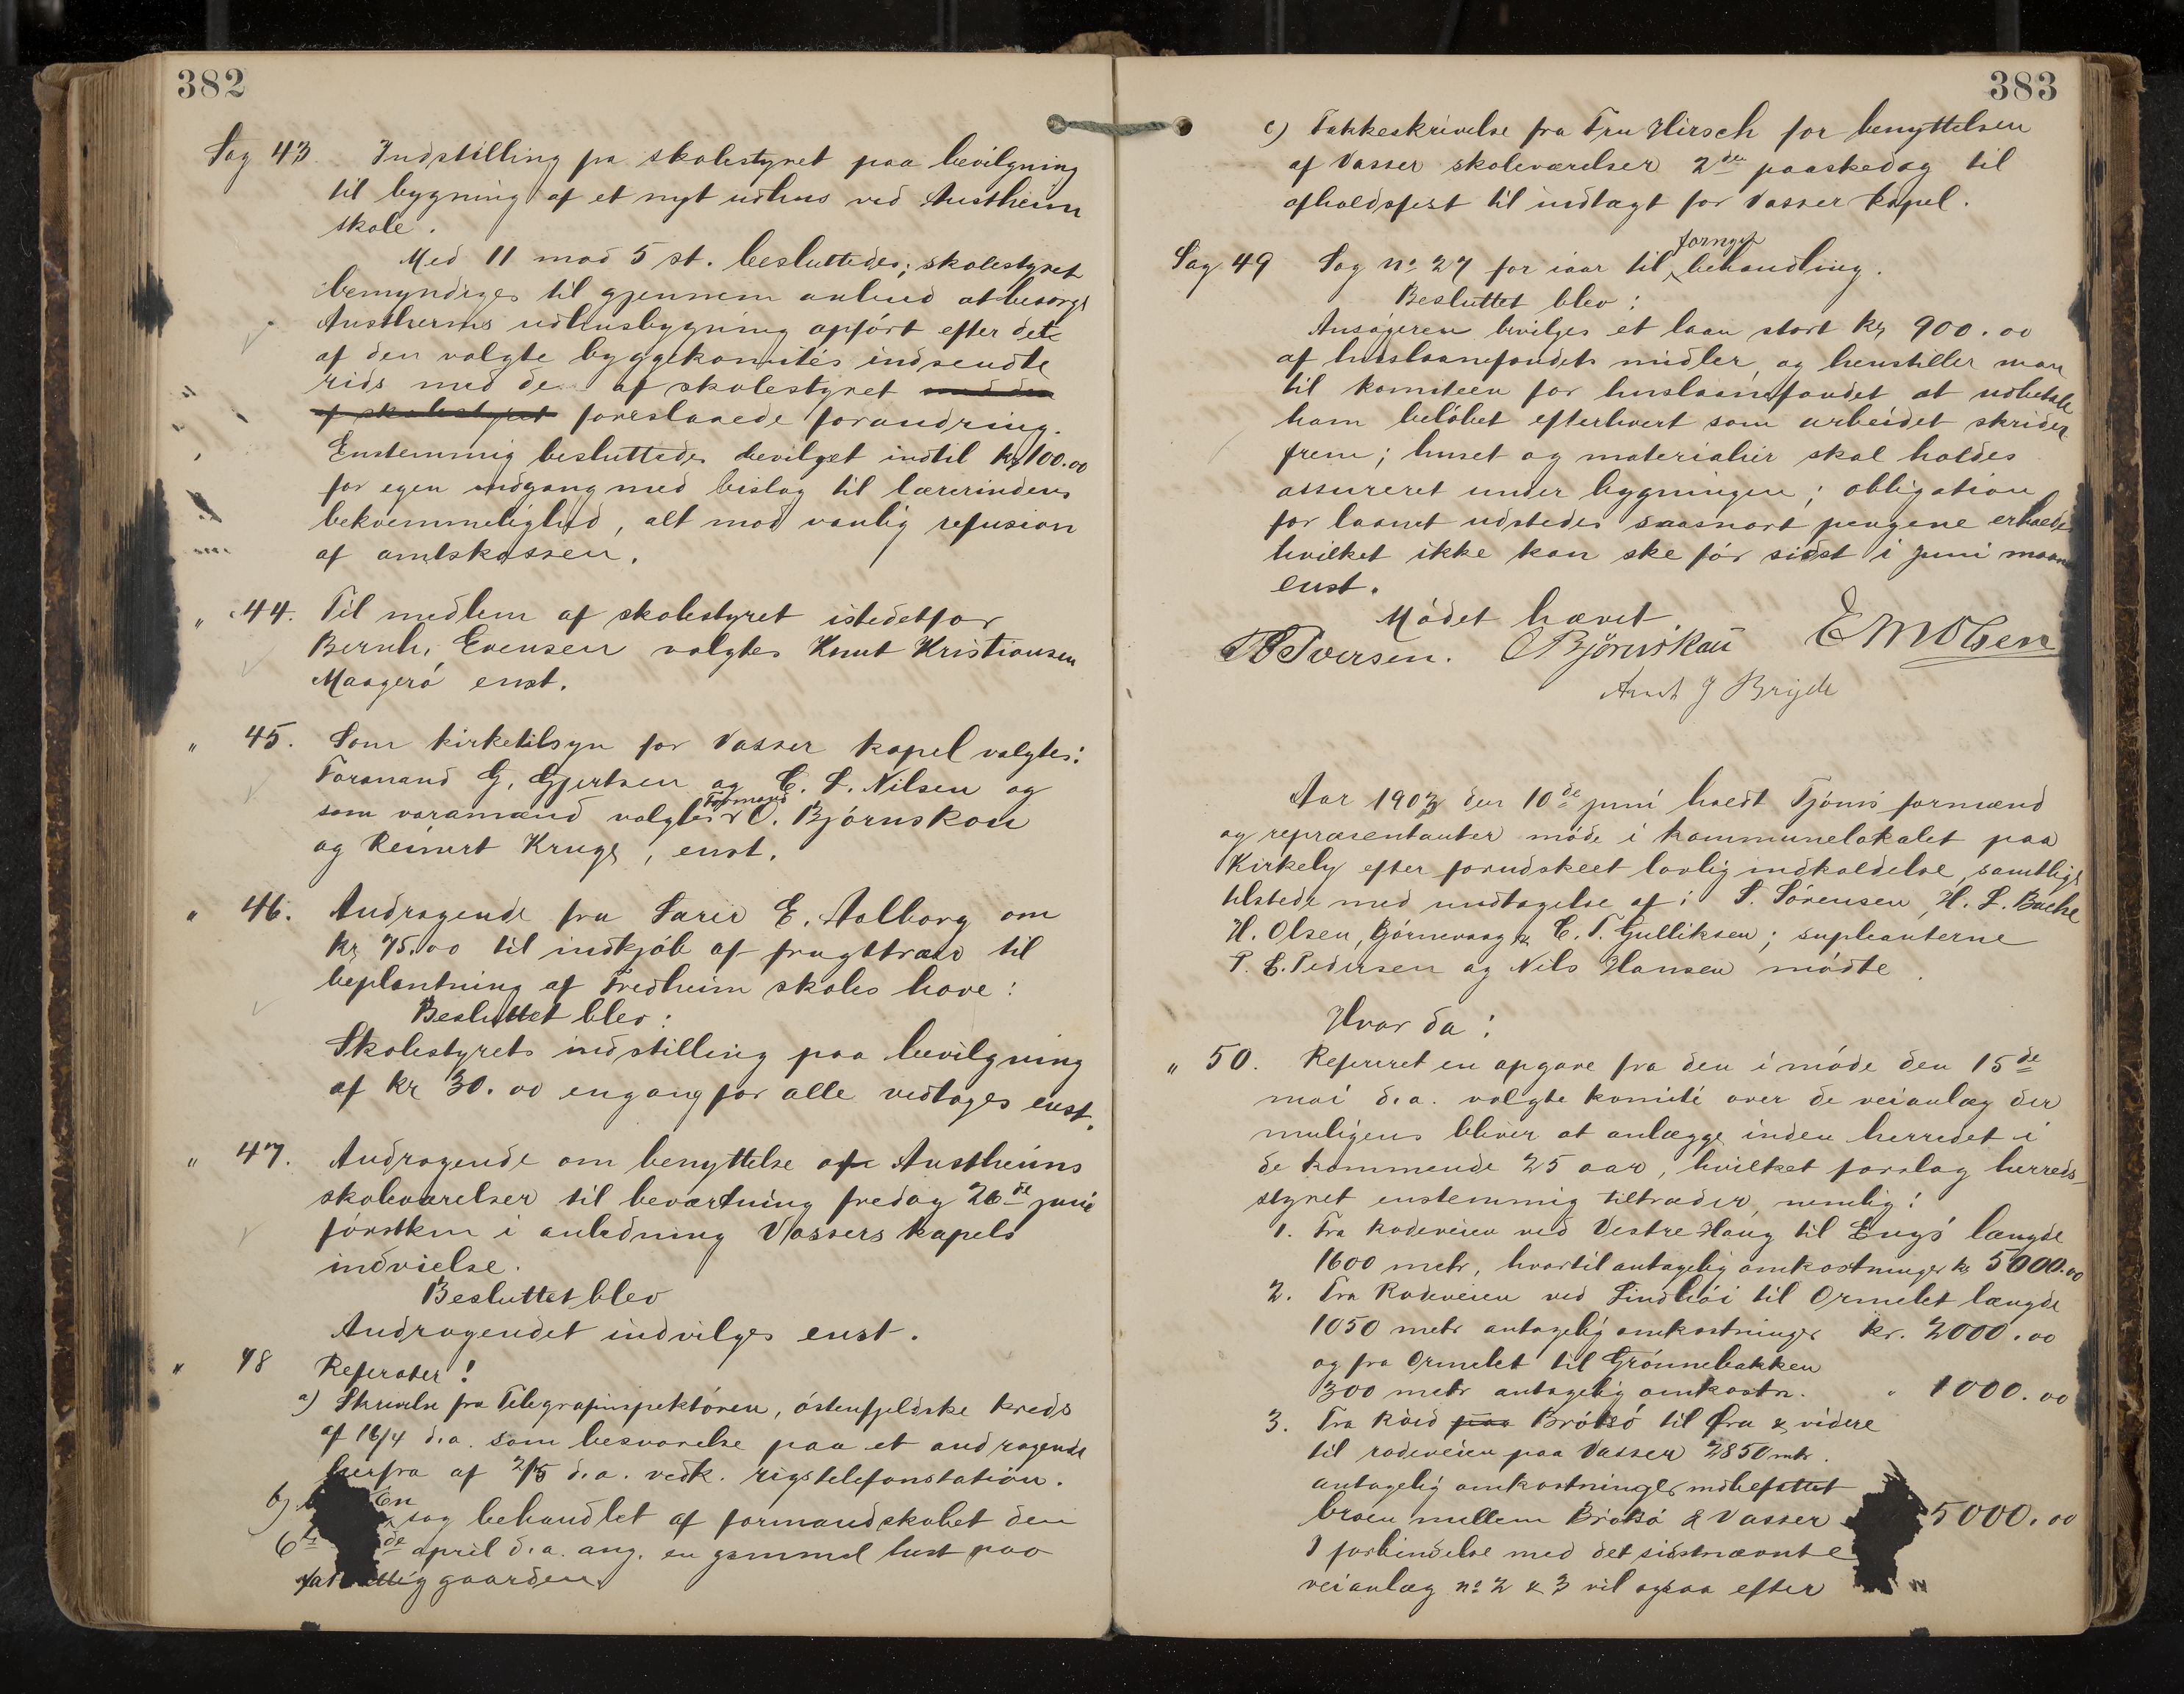 382
Sag 43 Indstilling fra skolestyret paa bevilgning
til bygning af et nyt udhus ved Austheim
skole.
Med 11 mod 5 st. besluttedes; skolestyret
bemyndiges til gjennem anbud at besørge
Austheims udhusbygning opført efter det
af den valgte byggekomités indsendte
rids med de af skolestyret med den
af skolestyret foreslaaede forandring.
Enstemmig besluttedes bevilget indtil kr 100.00
for egen indgang med bislag til lærerindens
bekvemmelighed, alt mod vanlig refusion
af amtskassen.
" 44. Til medlem af skolestyret istedetfor
Bernh. Evensen valgtes Knut Kristiansen
Maagerø enst.
" 45. Som kirketilsyn for Vasser kapel valgtes:
Formand G. Gjertsen og C. L. Nilsen og
som varamænd valgtes Formand O. Bjørnskau
og Reinert Kruge, enst.
" 46. Andragende fra Sarie E. Aalborg om
kr 75.00 til indkjøb af frugttrær til
beplantning af Fredheim skoles have:
Besluttet blev:
Skolestyrets indstilling paa bevilgning
af kr 30.00 engang for alle vedtages enst.
" 47. Andragende om benyttelse af Austheims
skoleværelser til beværtning fredag 26de juni
førstkm i anledning Vassers kapels
indvielse.
Besluttet blev
Andragendet indvilges enst.
" 48 Referater!
a) Skrivelse fra Telegrafinspektøren, østenfjeldske kreds
af 16/4 d.a. som besvarelse paa et andragende
herfra af 2/5 d.a. vedk. rigstelefonstation.
b) En sag behandlet af formandskabet den
6te de april d.a. ang. en gammel hest paa
gaarden
383
c) Takkeskrivelse fra Fru Hirsch for benyttelsen
af Vasser skoleværelser 2den paaskedag til
afholdsfest til indtægt for Vasser kapel.
Sag 49 Sag No 27 for iaar til fornyet behandling.
Besluttet blev:
Ansøgeren bevilges et laan stort kr 900.00
af huslaanefondets midler, og henstiller man
til komiteen for huslaanefondet at udbetale
ham beløbet efterhvert som arbeidet skrider
frem; huset og materialier skal holdes
assureret under bygningen; obligation
for laanet udstedes saasnart pengene erholdes
hvilket ikke kan ske før sidst i juni maaned
enst.
Mødet hævet
Iversen. O Bjørnskau E M Olsen
Arnt J Bryde
Aar 1903 den 10de juni holdt Tjømø formænd
og repræsentanter møde i kommunelokalet paa
Kirkely efter forudskeet lovlig indkaldelse, samtlige
tilstede med undtagelse af: S. Sørensen, H. L. Bache
H. Olsen, Bjørnevaag & C. T. Gulliksen; suplianterne
P. E. Pedersen og Nils Hansen mødte.
Hvor da:
" 50. Refereret en opgave fra den i møde den 15de
mai d.a. valgte komité over de veianlæg der
muligens bliver at anlægge inden herredet i
de kommende 25 aar, hvilket forslag herreds-
styret enstemmig tiltræder, nemlig:
1. Fra Rodeveien ved Vestre Haug til Engø længde
1600 metr, hvortil antagelig omkostninger kr 5000.00
2. Fra Rodeveien ved Lindhøi til Ormelet længde
1050 metr antagelig omkostninger kr. 2000.00
og fra Ormelet til Grønnebakken
300 metr antagelig omkostn. " 1000.00
3. Fra Kôid paa Brøtsø til Øra & videre
til rodeveien paa Vasser 2850 mtr.
antagelig omkostninger indbefattet
broen mellem Brøtsø & Vasser 5000.00
I forbindelse med det sidstnævnte
veianlæg no 2 & 3 vil ogsaa efter